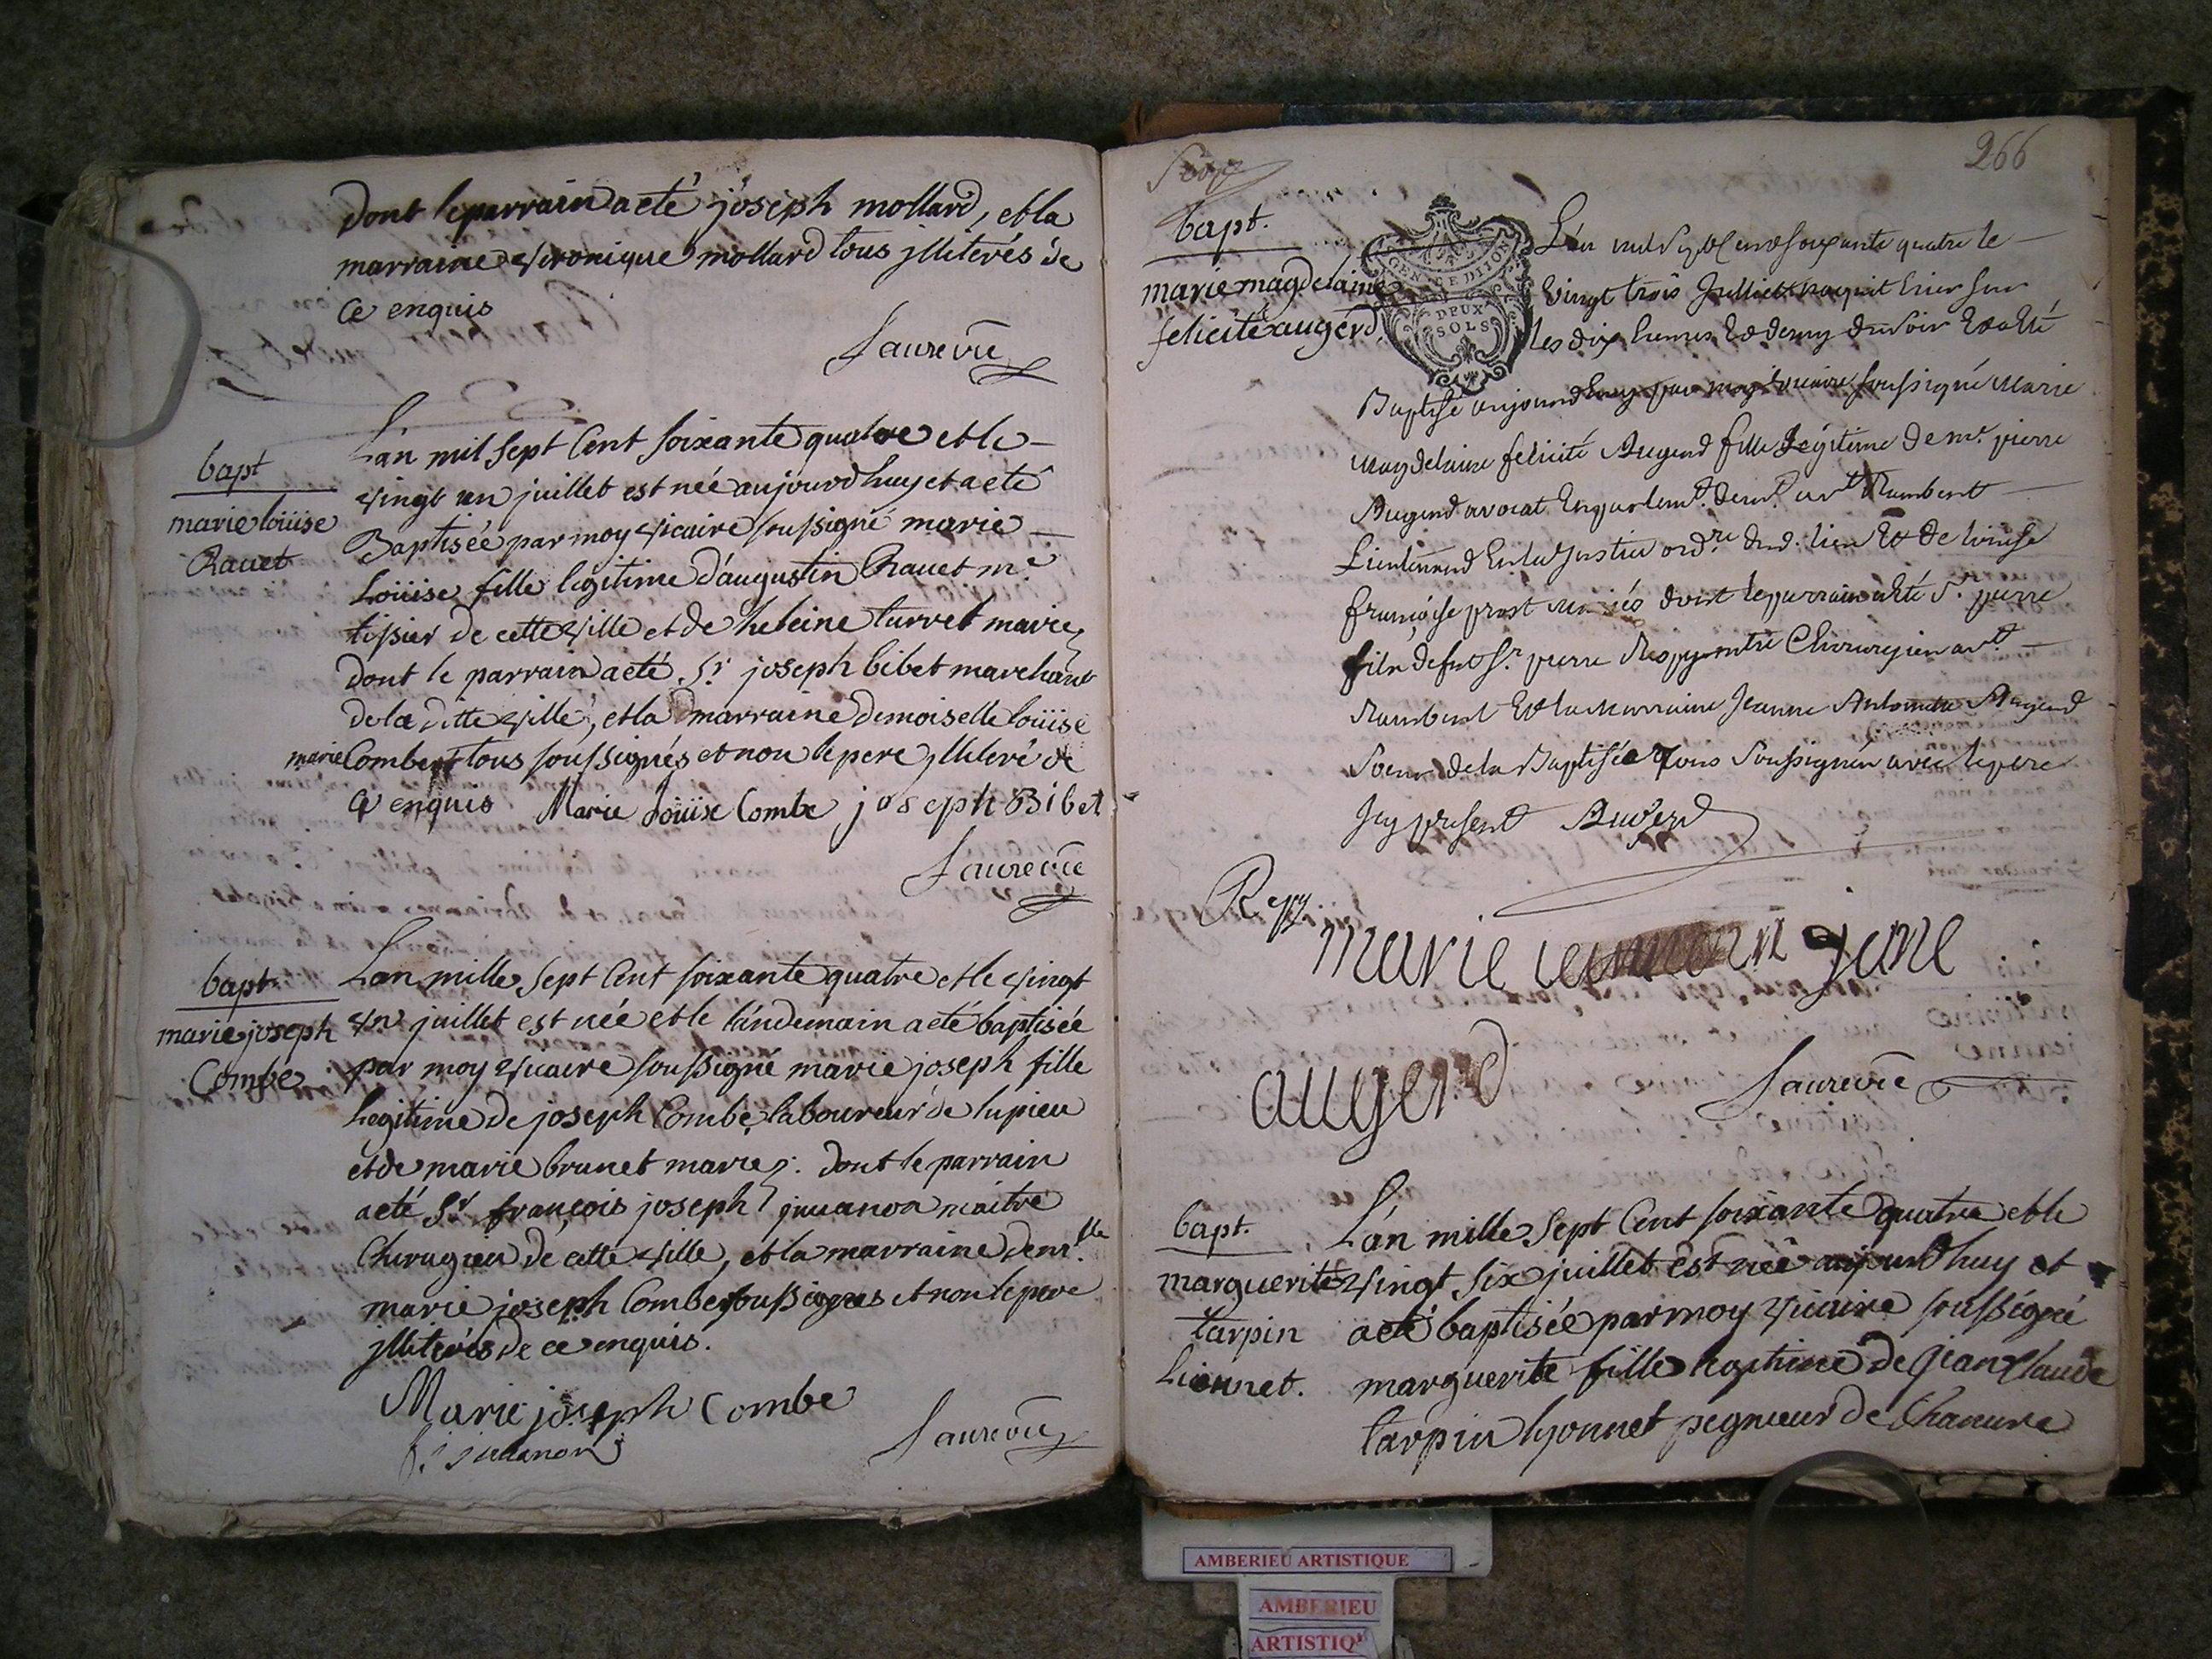 Dont le parrain a eté joseph mollard, et la
marraine veronique mollard tous jlliterés de
Ce enquis
Saure vic
bapt
marie loüise
Ravet
L'an mil sept Cent soixante quatre et le
vingt un juillet est née aujourd huy et a eté
Baptisée par moy vicaire soussigné marie
Loüise fille legitime d'augustin Ravet me
tissier de cette ville et de heleine turvet mariez
dont le parrain a eté Sr joseph bibet marchant
de la ditte ville, et la marraine demoiselle loüise
marie Combe tous soussignés et non le pere jlliteré de
Ce enquis Marie Loüise Combe joseph Bibet
Saure vic
bapt
marie joseph
Combe
L'an mille sept Cent soixante quatre et le vingt
un juillet est née et le landemain a eté baptisée
par moy vicaire soussigné marie joseph fille
Legitime de joseph Combe laboureur de lupieu
et de marie brunet mariez. dont le parrain
a eté Sr françois joseph juvanon maitre
Chirugien de cette ville, et la marraine demlle
marie joseph Combe soussignes et non le pere
jlliterés de ce enquis.
Marie joseph Combe
f. j juvanon
Saure vic
266
bapt.
marie magdelaine
felicité augerd.
GEN DE DIJON
DEUX
SOLS
L'an mil Sept Cent soixante quatre le
vingt trois Juilliet naquit hier sur
les dix heures et demy du soir et a Eté
Baptisé aujourdhuy par moy vicaire soussigné Marie
Magdelaine felicité Augerd fille Legitime de mr. pierre
Augerd avocat En parlemt. demt. a st Rambert
Lieutenend En la Justice ordre. dud. lieu Et de Louise
françoise prost mariés dont le parrain a Eté Sr. pierre
fils de feu Sr. pierre Reppy Chirurgien a st.
Rambert Et la Marraine Jeanne Antoinette Augerd
Soeur de la Baptisée Tous Soussignés avec le pere
Icy present Augerd
Reppy
marie jane
augerd
Saure vic
bapt.
marguerite
tarpin
Lionnet.
L'an mille Sept Cent soixante quatre et le
vingt six juillet est née aujourdhuy et
a eté baptisée par moy vicaire soussigné
marguerite fille legitime de Jean Claude
tarpin lyonnet pegneur de Chanvre
AMBERIEU ARTISTIQUE
AMBERIEU
ARTISTIQ